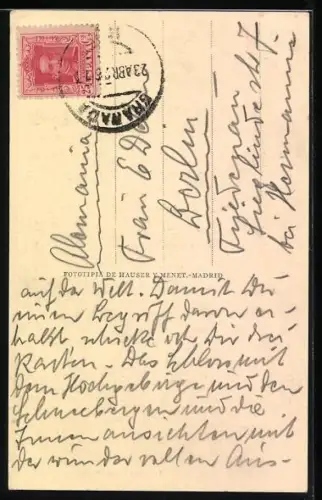 GRANADA
23 ABR 2
Alemania
Frau E
Berlin
Friedenau
Sieglindestr 7
bei Hermanns
FOTOTIPIA DE HAUSER Y MENET.-MADRID
auf der Welt. Damit Du
einen Begriff davon er-
hälst, schicke ich Dir drei
Karten. Das Schloss mit
dem Hochgebirge und den
Schneebergen und die
Innenansichten mit
der wundervollen Aus-